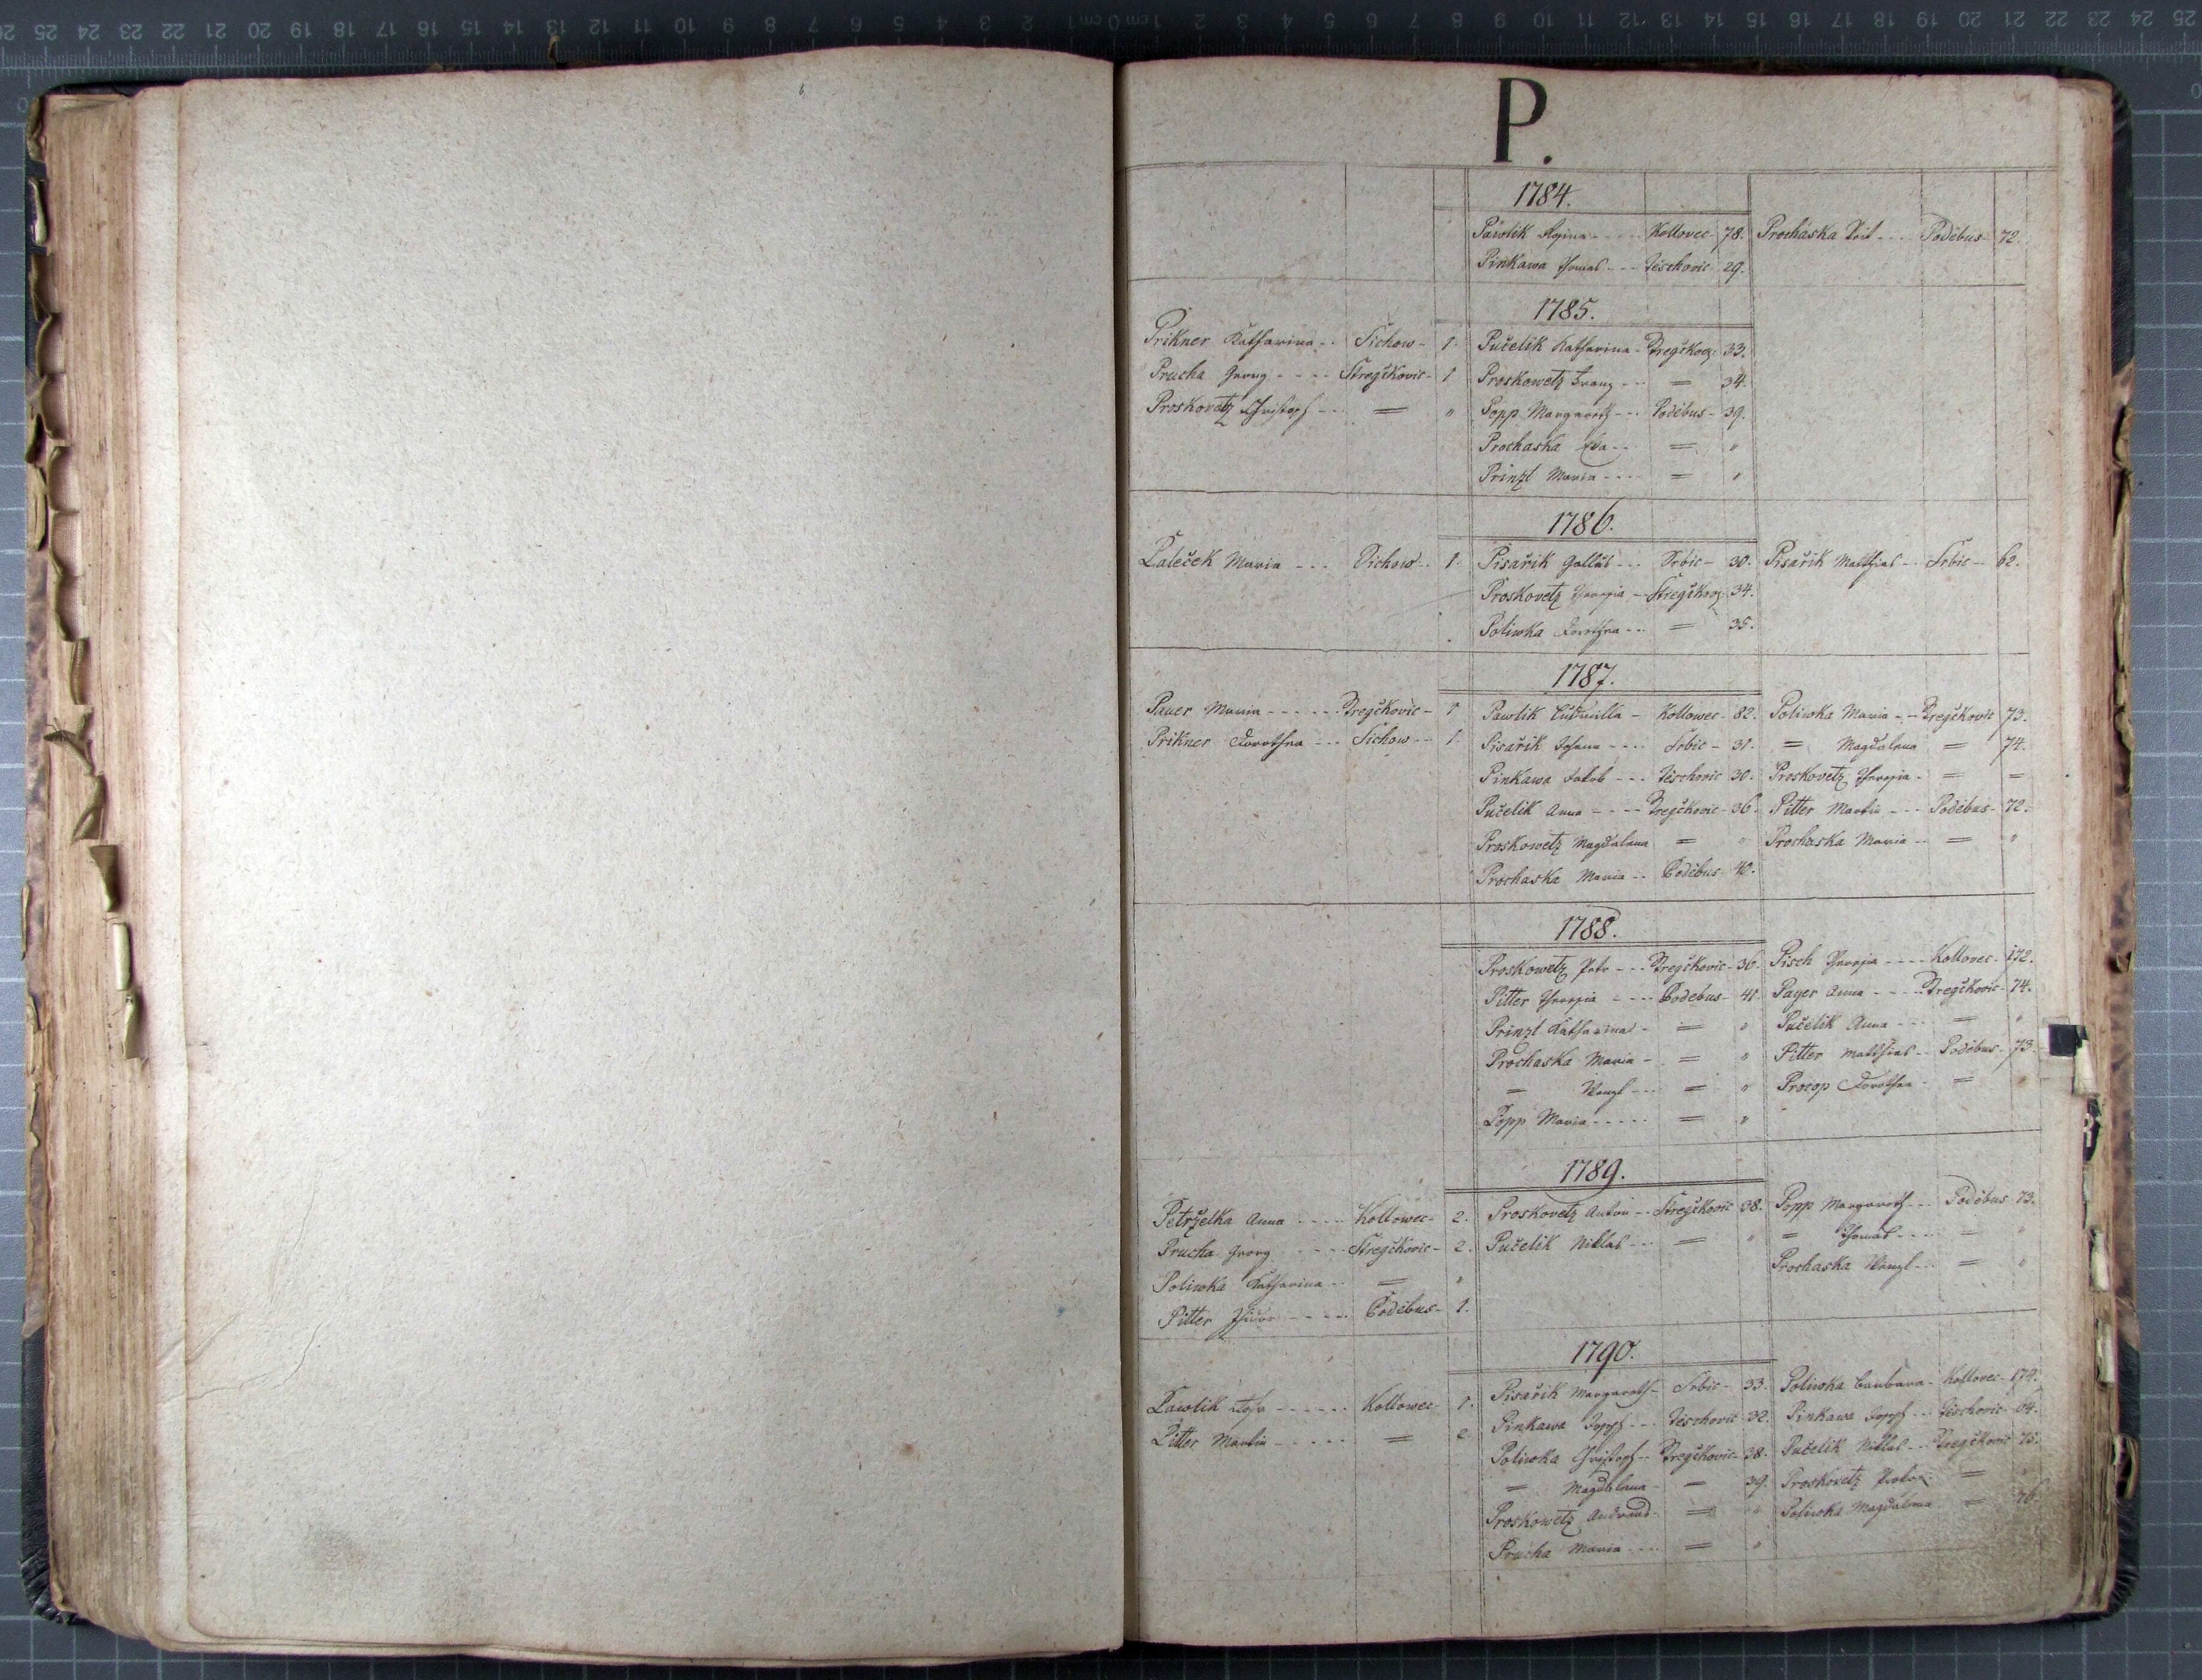 P.
1784.
Pawlik Regina - - - - Kollovec - 78. Prochaska Veit - - - Poděbus - 72.
Pinkawa Thomas - - - Těschovic - 29.
1785.
Prikner Katharina - - Sichow - 1. Pučelik Katharina - Stregčkovz - 33.
Prucha Georg - - - - Stregčkovic - 1 Proskowetz Franz - - - = 34.
Proskovetz Christoph - - - = " Popp Margareth - - - Poděbus - 39.
Prochaska Eva - - = "
Prinzl Maria - - - - = "
1786.
Paleček Maria - - - Sichow - - 1. Pisařik Gallus - - - Srbic - 30. Pisařik Mathias - - Srbic - - 62.
Proskovetz Theresia - Stregčkovz 34.
Poliwka Dorothea - - = 35.
1787.
Pauer Maria - - - - - Stregčkovic - 1 Pawlik Ludmilla - Kollowec - 82. Poliwka Maria - - Stregčkovic 73.
Prikner Dorothea - - - Sichow - - 1. Pisařik Johann - - - - Srbic - 31. = Magdalena = 74.
Pinkawa Jakob - - - Těschovic 30. Proskovetz Theresia - = =
Pučelik Anna - - - - Stregčkovic - 36. Pitter Martin - - - Poděbus - 72.
Proskowetz Magdalena = " Prochaska Maria - - = "
Prochaska Maria - - Poděbus - 40.
1788.
Proskowetz Petr - - - Stregčkovic - 36. Pisch Theresia - - - - Kollovec - 172.
Pitter Theresia - - - - Podebus - 41. Payer Anna - - - - Stregčkovic - 74.
Prinzl Katharina - = " Pučelik Anna - - - = "
Prochaska Maria - = " Pitter Mathias - - Poděbus - 73.
= Wenzl - - - = " Procop Dorothea - =
Popp Maria - - - - - = "
1789.
Petrželka Anna - - - - Kollowec - 2. Proskovetz Anton - - Stregčkovic 38. Popp Margareth - - - Poděbus 73.
Prucha Georg - - - - Stregčkovic - 2. Pučelik Niklas - - - = " = Thomas - - - - = "
Poliwka Katharina - - = " Prochaska Wenzl - - - = "
Pitter - - - - - Poděbus - 1.
1790.
Pawlik - - - - - - Kollowec 1. Pisařik Margareth - Srbic - 33. Poliwka Barbara - Kollovec - 174.
Pitter Martin - - - - - = 2 Pinkawa Joseph - - - Těschovic 32. Pinkawa Joseph - - - Těschovic 54.
Poliwka Christoph - - Stregčkovic - 38. Pučelik Niklas - - Stregčkovic 75.
= Magdalena - = 39. Proskovetz =
Proskowetz Andreas = " Poliwka Magdalena = 76.
Prucha Maria - - - - = "